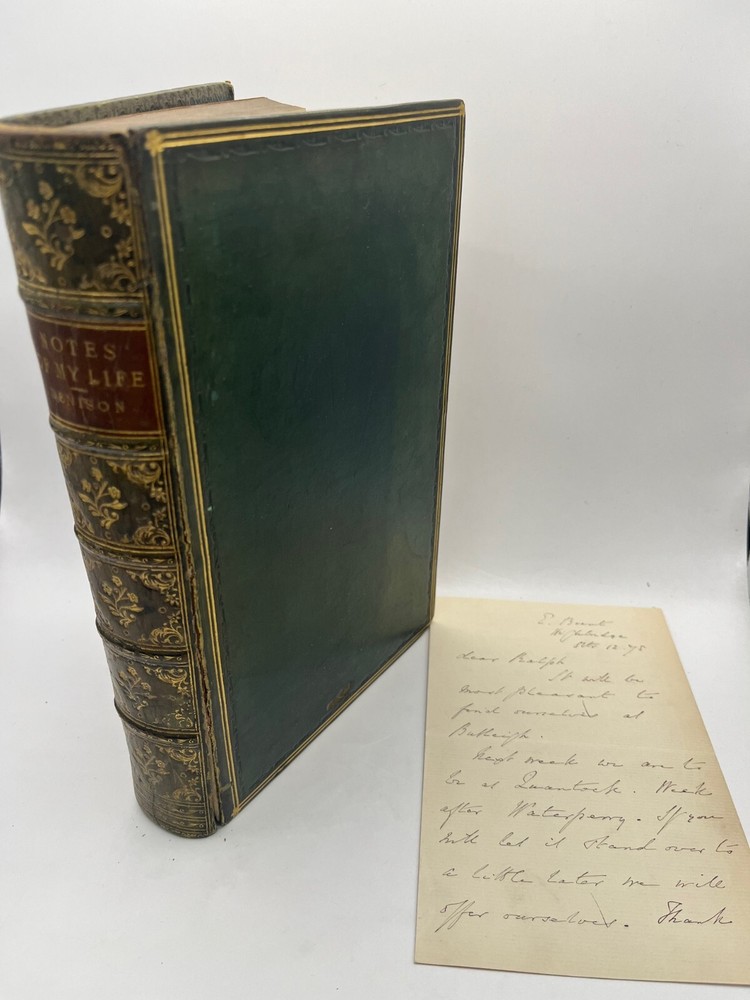 NOTES
OF MY LIFE
DENISON
E. Brent
Highbridge
12.78
dear Ralph
It will be
most pleasant to
find ourselves at
Butleigh.
Next week we are to
be at Quantock. Week
after Waterperry. If you
will let it stand over to
a little later we will
offer ourselves. Thank